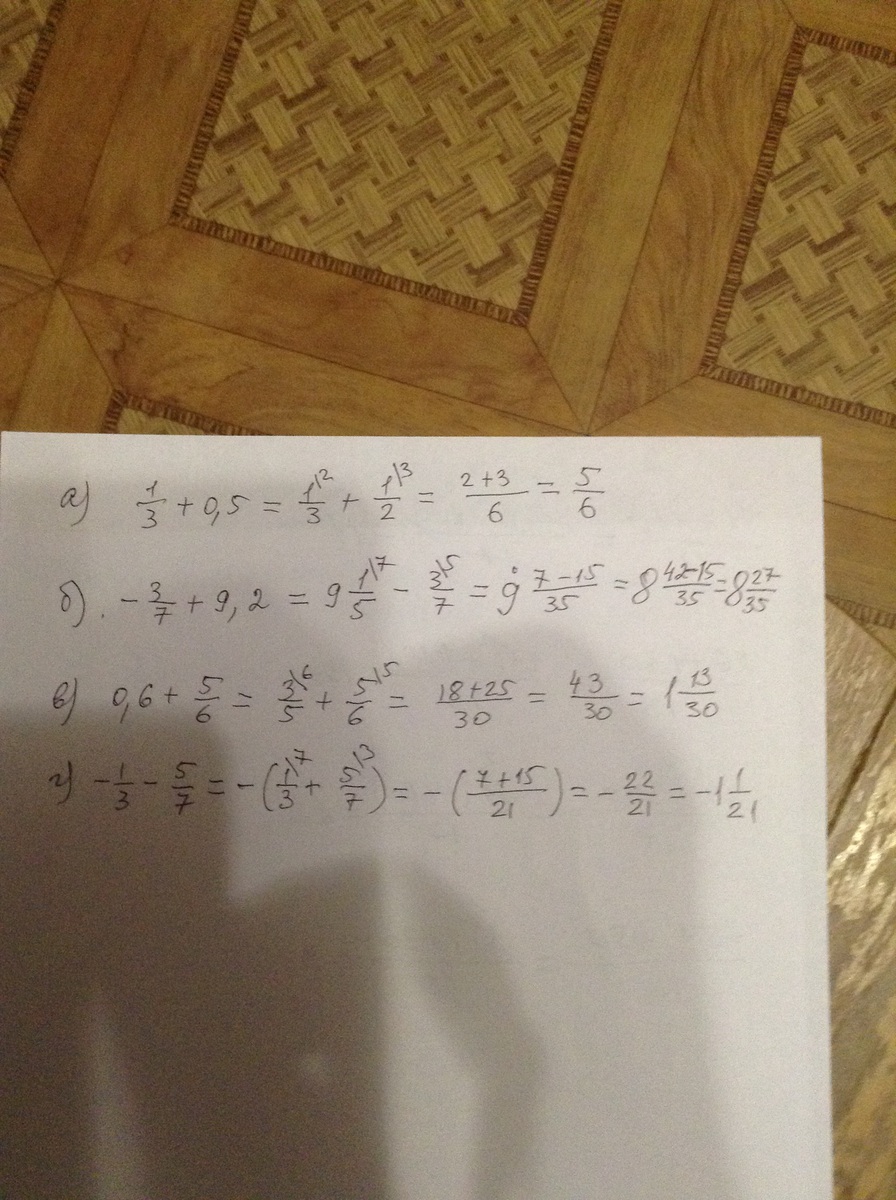 а) 1/3 + 0,5 = 1\2/3 + 1\3/2 = 2+3/6 = 5/6
б). -3/7 + 9,2 = 9 1\7/5 - 3\5/7 = 9 7-15/35 = 8 42-15/35 = 8 27/35
в) 0,6 + 5/6 = 3\6/5 + 5\5/6 = 18+25/30 = 43/30 = 1 13/30
г) -1/3 - 5/7 = -(1\7/3 + 5\3/7) = -(7+15/21) = -22/21 = -1 1/21